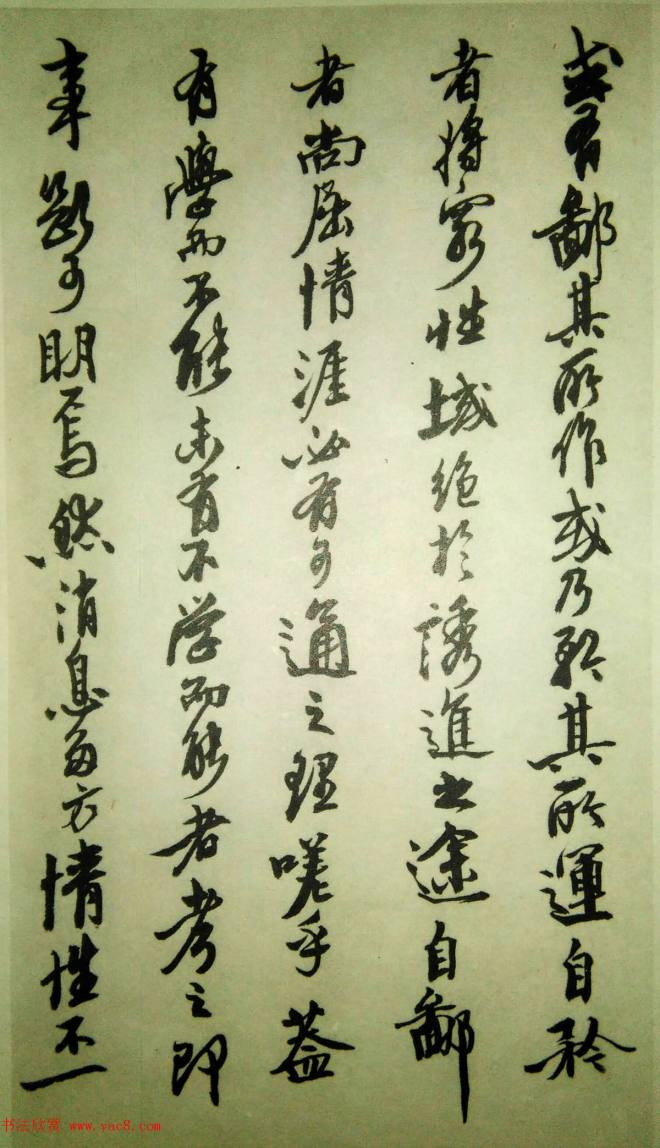 或有鄙其所作或乃矜其所運自矜
者将窮性域絶於誘進之途自鄙
者尚屈情涯必有可通之理嗟乎蓋
有學而不能未有不学而能者考之即
事斷可明焉然消息多方情性不一
书法欣赏 www.yac8.com